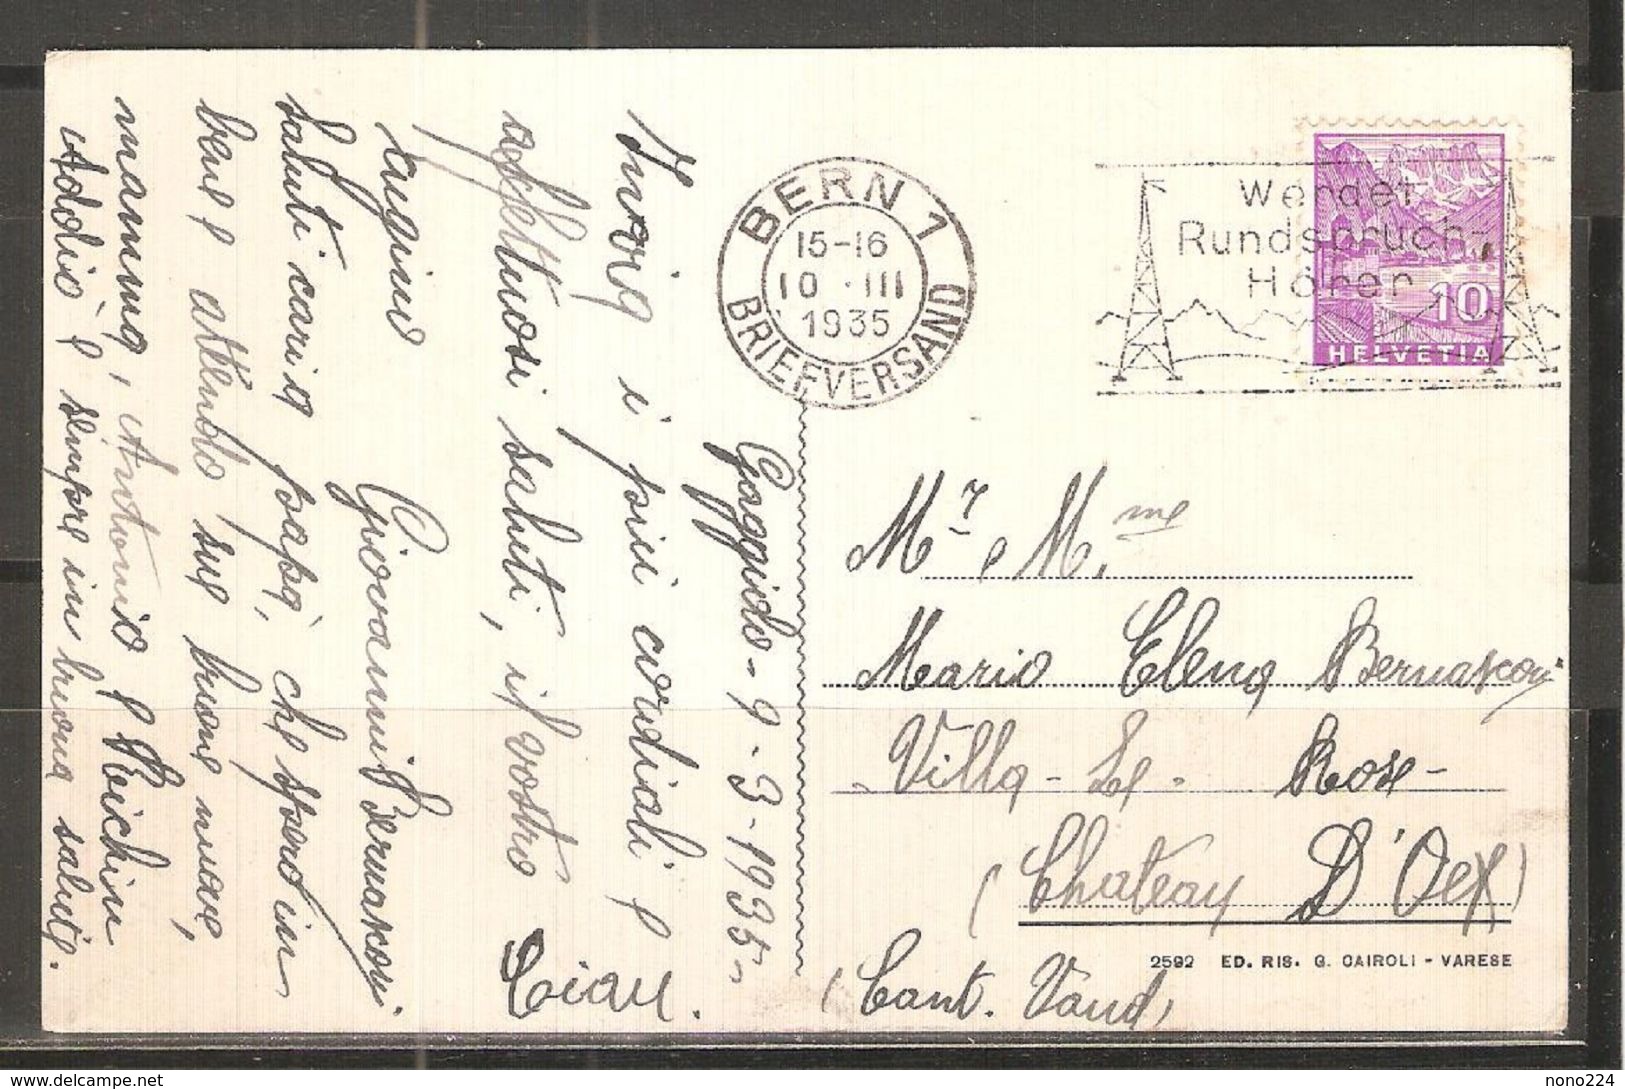 Gaggiolo - 9 - 3 - 1935 -
Invia i più cordiali e
affettuosi saluti, il vostro
cugino
Giovanni Bernasconi
Ciau.
Saluti cari a papà, che spero in
bene e attendo sue buone nuove,
mamma, Antonio e Reichin
Addio e sempre in buona salute.
BERN 1
15-16
10 · III
1935
BRIEFVERSAND
Werdet
Rundspruch-
Hörer
10
HELVETIA
Mr e Mme
Mario Elena Bernasconi
Villa - Le - Rose -
(Chateau D'Oex)
(Cant. Vaud)
2592 ED. RIS. G. CAIROLI - VARESE
delcampe.net
nono224